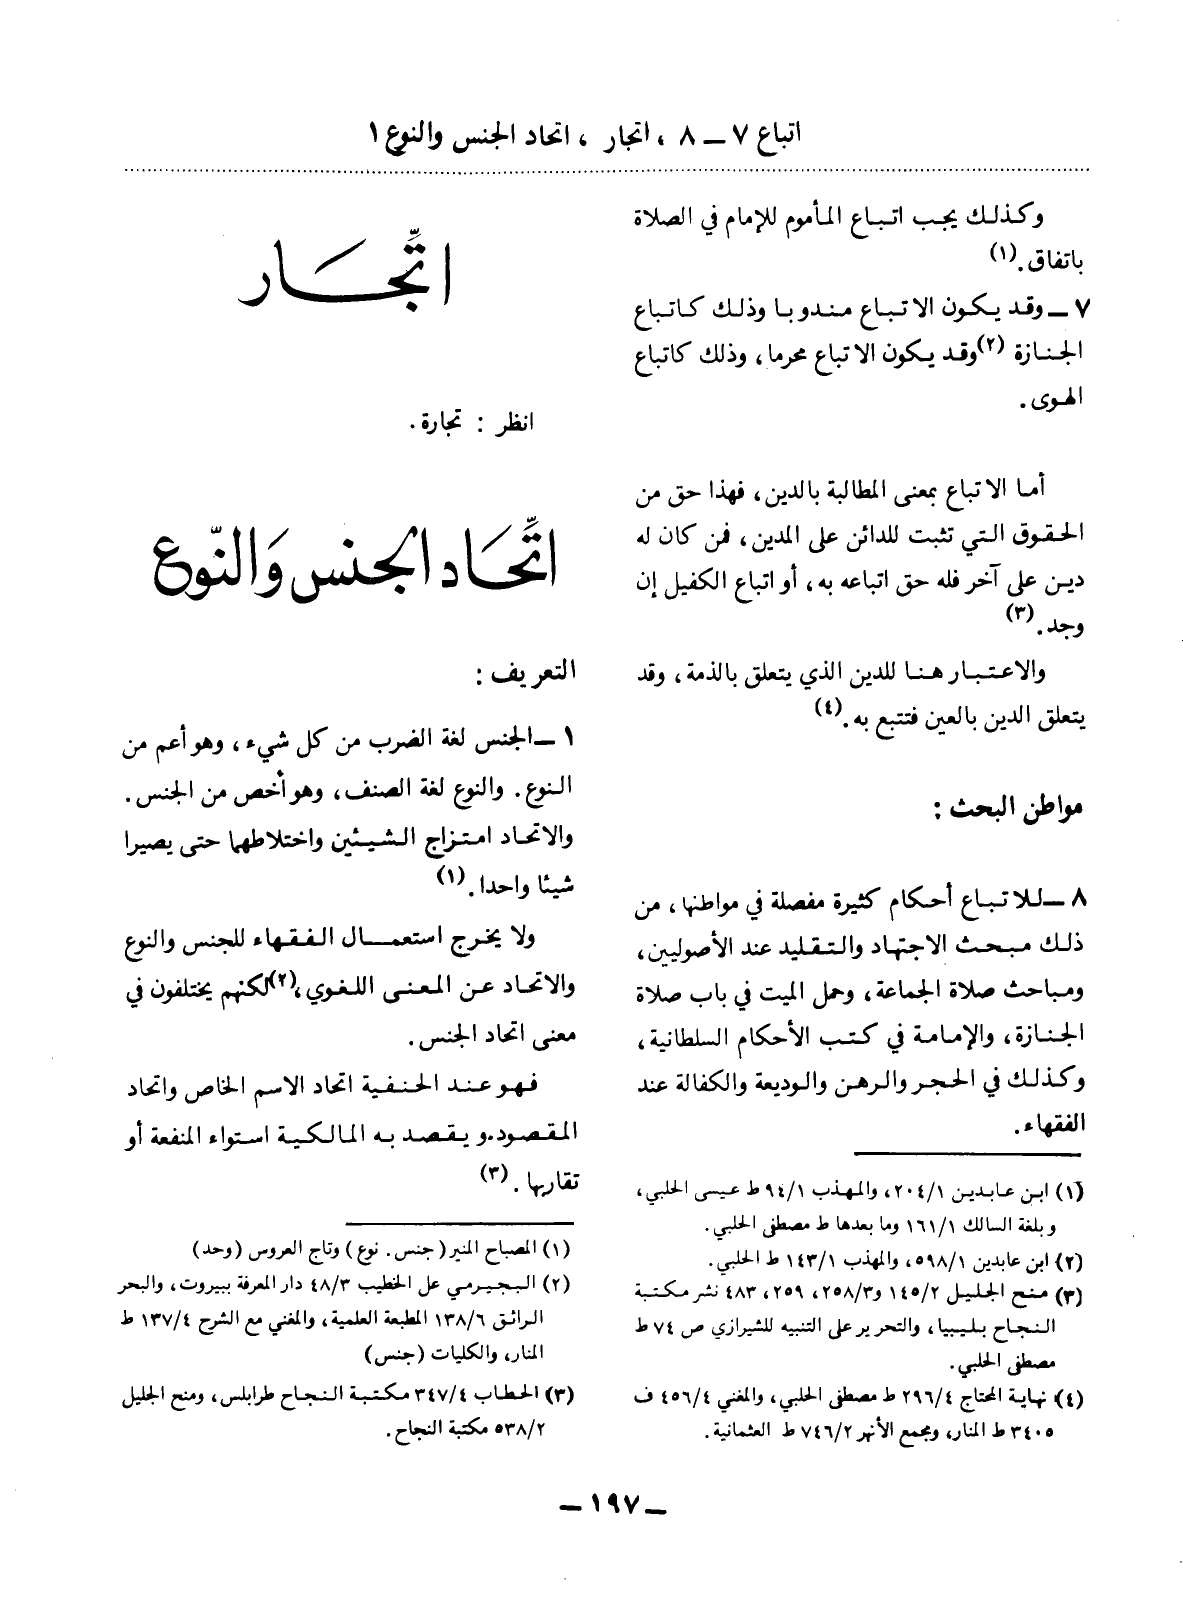 اتباع ٧ ــ ٨ ، اتجار ، اتحاد الجنس والنوع ١
وكذلك يجب اتباع المأموم للإمام في الصلاة
باتفاق.(١)
٧ ــ وقد يكون الاتباع مندوبا وذلك كاتباع
الجنازة (٢) وقد يكون الاتباع محرما، وذلك كاتباع
الهوى.
أما الاتباع بمعنى المطالبة بالدين، فهذا حق من
الحقوق التي تثبت للدائن على المدين، فمن كان له
دين على آخر فله حق اتباعه به، أو اتباع الكفيل إن
وجد.(٣)
والاعتبار هنا للدين الذي يتعلق بالذمة، وقد
يتعلق الدين بالعين فتتبع به.(٤)
مواطن البحث :
٨ ــ للاتباع أحكام كثيرة مفصلة في مواطنها، من
ذلك مبحث الاجتهاد والتقليد عند الأصوليين،
ومباحث صلاة الجماعة، وحمل الميت في باب صلاة
الجنازة، والإمامة في كتب الأحكام السلطانية،
وكذلك في الحجر والرهن والوديعة والكفالة عند
الفقهاء.
(١) ابن عابدين ٢٠٤/١، والمهذب ٩٤/١ ط عيسى الحلبي،
وبلغة السالك ١٦١/١ وما بعدها ط مصطفى الحلبي.
(٢) ابن عابدين ٥٩٨/١، والمهذب ١٤٣/١ ط الحلبي.
(٣) منح الجليل ١٤٥/٢ و٢٥٨/٣، ٢٥٩، ٤٨٣ نشر مكتبة
النجاح بليبيا، والتحرير على التنبيه للشيرازي ص ٧٤ ط
مصطفى الحلبي.
(٤) نهاية المحتاج ٢٩٦/٤ ط مصطفى الحلبي، والمغني ٤٥٦/٤ ف
٣٤٠٥ ط المنار، ومجمع الأنهر ٧٤٦/٢ ط العثمانية.
اتِّجَار
انظر : تجارة.
اتِّحَاد الجنس وَالنّوع
التعريف :
١ ــ الجنس لغة الضرب من كل شيء، وهو أعم من
النوع. والنوع لغة الصنف، وهو أخص من الجنس.
والاتحاد امتزاج الشيئين واختلاطهما حتى يصيرا
شيئا واحدا.(١)
ولا يخرج استعمال الفقهاء للجنس والنوع
والاتحاد عن المعنى اللغوي،(٢) لكنهم يختلفون في
معنى اتحاد الجنس.
فهو عند الحنفية اتحاد الاسم الخاص واتحاد
المقصود. ويقصد به المالكية استواء المنفعة أو
تقاربها.(٣)
(١) المصباح المنير (جنس. نوع) وتاج العروس (وحد)
(٢) البجيرمي عل الخطيب ٤٨/٣ دار المعرفة ببيروت، والبحر
الرائق ١٣٨/٦ المطبعة العلمية، والمغني مع الشرح ١٣٧/٤ ط
المنار، والكليات (جنس)
(٣) الحطاب ٣٤٧/٤ مكتبة النجاح طرابلس، ومنح الجليل
٥٣٨/٢ مكتبة النجاح.
ــ ١٩٧ ــ